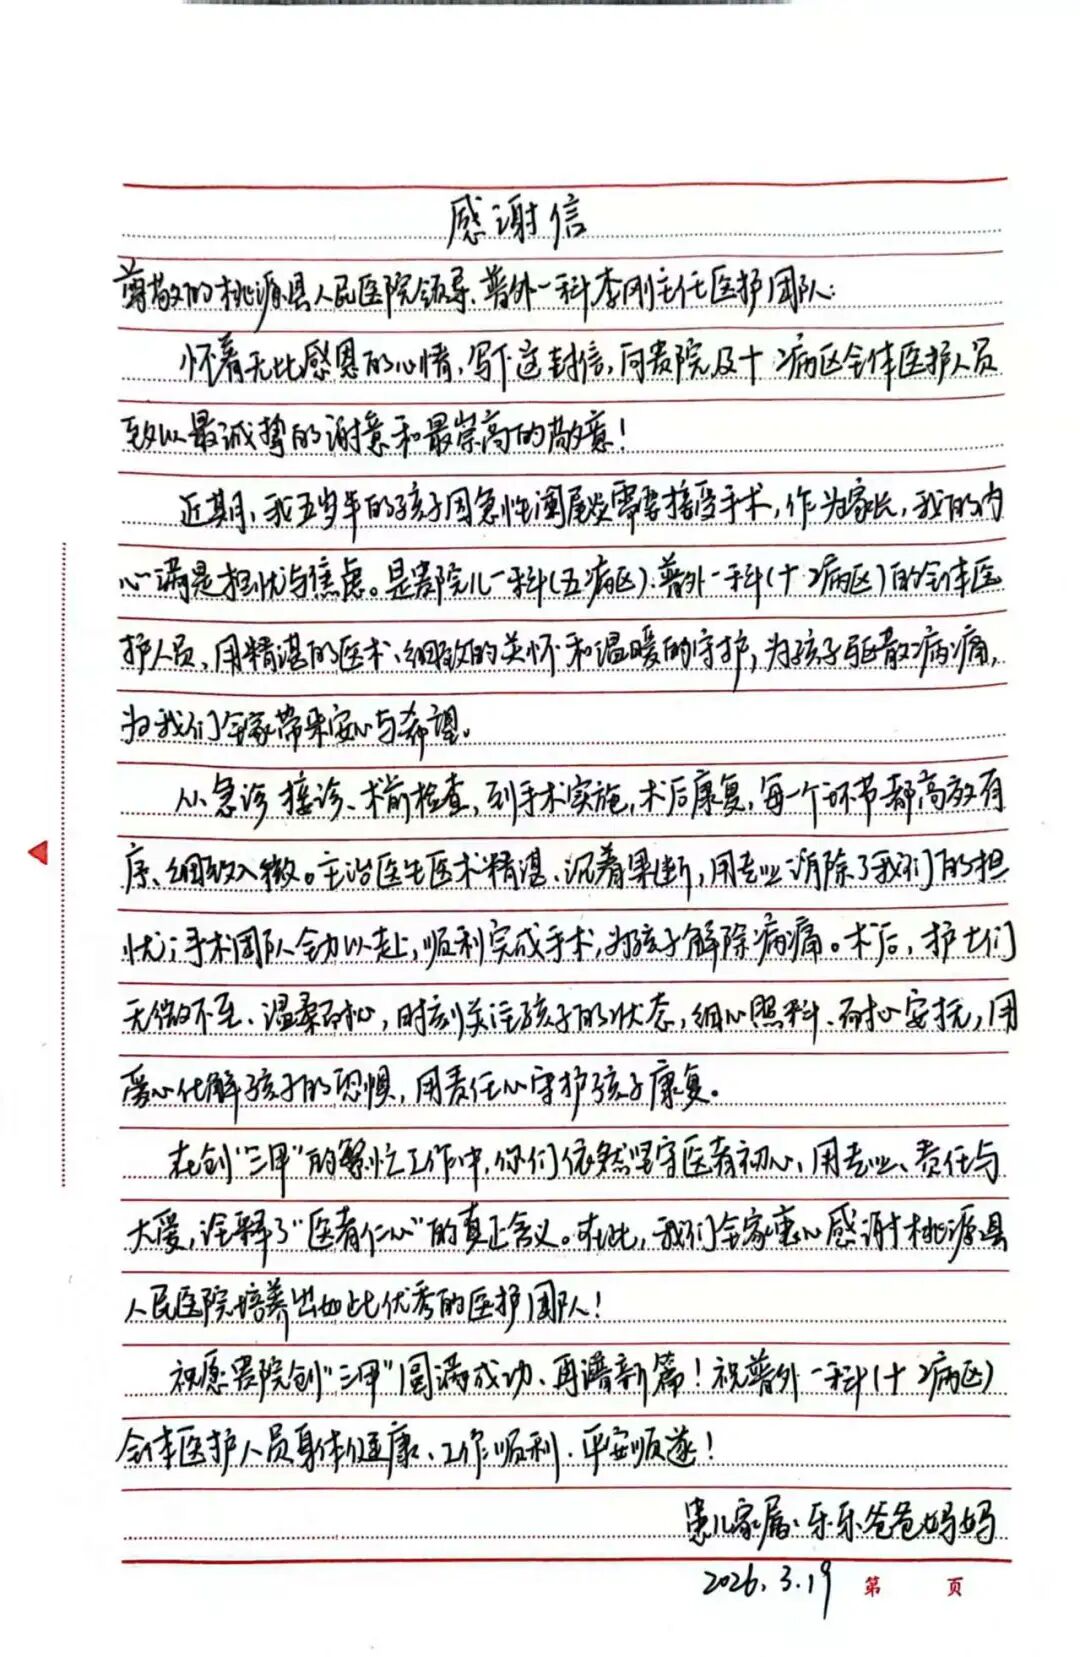 感谢信
尊敬的桃源县人民医院领导、普外一科李刚主任医护团队:
怀着无比感恩的心情,写下这封信,向贵院及十二病区全体医护人员
致以最诚挚的谢意和最崇高的敬意!
近期,我五岁年的孩子因急性阑尾炎需要接受手术,作为家长,我的内
心满是担忧与焦虑。是贵院儿一科(五病区)、普外一科(十二病区)的全体医
护人员、用精湛的医术、细致的关怀和温暖的守护,为孩子驱散病痛,
为我们全家带来安心与希望。
从急诊接诊、术前检查,到手术实施,术后康复,每一个环节都高效有
序、细致入微。主治医生医术精湛、沉着果断,用专业消除了我们的担
忧;手术团队全力以赴,顺利完成手术,为孩子解除病痛。术后,护士们
无微不至、温柔耐心,时刻关注孩子的状态,细心照料、耐心安抚,用
爱心化解孩子的恐惧,用责任心守护孩子康复。
在创“三甲”的繁忙工作中,你们依然坚守医者初心,用专业、责任与
大爱,诠释了“医者仁心”的真正含义。在此,我们全家衷心感谢桃源县
人民医院培养出如此优秀的医护团队!
祝愿贵院创“三甲”圆满成功、再谱新篇!祝普外一科(十二病区)
全体医护人员身体健康、工作顺利、平安顺遂!
患儿家属:乐乐爸爸妈妈
2026.3.19
第 页